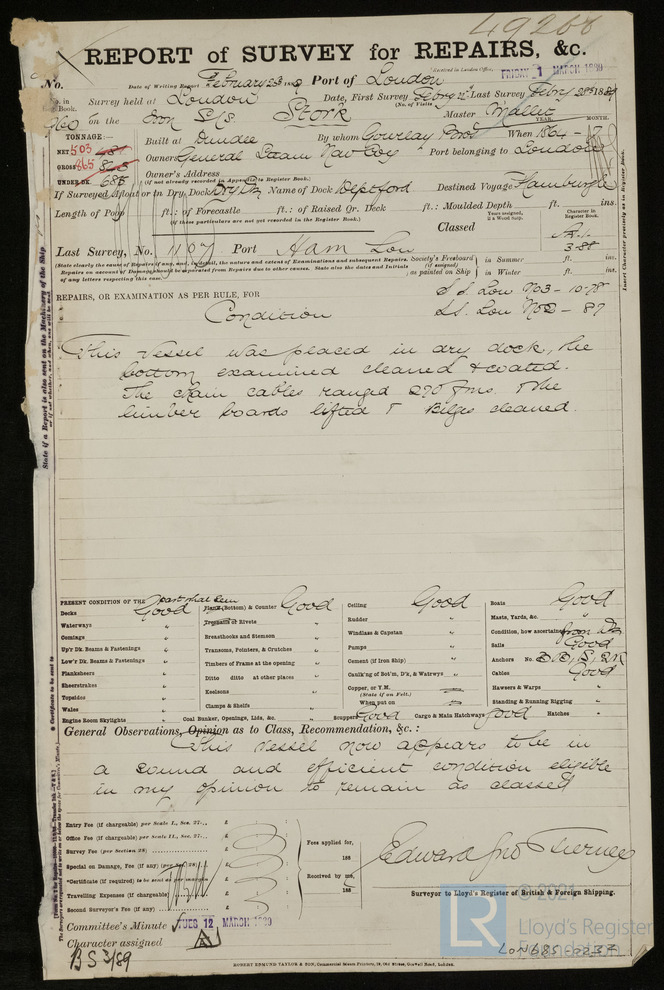 49268
REPORT of SURVEY for REPAIRS, &c.
Received in London Office, FRIDAY 1 MARCH 1889
No. Date of Writing Report February 28th 1889 Port of London
No. in Book. Survey held at London Date, First Survey Febry Last Survey Febry 28th 1889
(No. of Visits)
960 on the Iron S/S Stork Master Mallet
TONNAGE:— YEAR. MONTH.
NET 503 Built at Dundee By whom Gourlay Bros When 1864 -
GROSS 865 Owners General Steam Nav Coy Port belonging to London
UNDER DK 685 Owner's Address
(if not already recorded in Appendix to Register Book.)
If Surveyed Afloat or in Dry Dock Dry Dk Name of Dock Deptford Destined Voyage Hamburgh
Length of Poop ft.: of Forecastle ft.: of Raised Qr. Deck ft.: Moulded Depth ft. ins.
(if these particulars are not yet recorded in the Register Book.)
Classed
Years assigned, if a Wood Ship.
Character in Register Book.
A.1.
3.88
Last Survey, No. 1107 Port Ham Lon
Society's Freeboard (if assigned) as painted on Ship { in Summer ft. ins.
in Winter ft. ins.
(State clearly the cause of Repairs if any, and, in detail, the nature and extent of Examinations and subsequent Repairs. Repairs on account of Damage should be separated from Repairs due to other causes. State also the dates and Initials of any letters respecting this case.
REPAIRS, OR EXAMINATION AS PER RULE, FOR
S.S. Lon No3 - 10.78
Condition
S.S. Lon No2 - 87
This vessel was placed in dry dock, the
bottom examined cleaned & coated.
The chain cables ranged 270 fms. The
limber boards lifted & Bilges cleaned.
PRESENT CONDITION OF THE part what seen
Decks Good
Waterways "
Comings "
Up'r Dk. Beams & Fastenings "
Low'r Dk. Beams & Fastenings "
Planksheers "
Sheerstrakes "
Topsides "
Wales "
Engine Room Skylights "
Plank (Bottom) & Counter Good
Treenails or Rivets "
Breasthooks and Stemson "
Transoms, Pointers, & Crutches "
Timbers of Frame at the opening "
Ditto ditto at other places "
Keelsons "
Clamps & Shelfs "
Coal Bunker, Openings, Lids, &c. "
Ceiling Good
Rudder "
Windlass & Capstan "
Pumps "
Cement (if Iron Ship) "
Caulk'ng of Bot'm, D'k, & Watrwys "
Copper, or Y.M.
(State if on Felt.)
When put on
Scuppers Good Cargo & Main Hatchways Good
Boats Good
Masts, Yards, &c. "
Condition, how ascertained from Dk
Sails Good
Anchors No. 3B, 1S, 2K
Cables Good
Hawsers & Warps "
Standing & Running Rigging "
Hatches "
General Observations, Opinion as to Class, Recommendation, &c. :
This vessel now appears to be in
a sound and efficient condition eligible
in my opinion to remain as classed
Entry Fee (if chargeable) per Scale I., Sec. 27... £
Office Fee (if chargeable) per Scale II., Sec. 27... £
Survey Fee (per Section 28) £
Special on Damage, Fee (if any) (per Sec. 28) £
*Certificate (if required) to be sent as per margin £
Travelling Expenses (if chargeable) £
Second Surveyor's Fee (if any) £
Fees applied for,
188
Received by me,
188
Surveyor to Lloyd's Register of British & Foreign Shipping.
Committee's Minute TUES 12 MARCH 1889
Character assigned A
BS 3/89
ROBERT EDMUND TAYLOR & SON, Commercial Steam Printers, 19, Old Street, Goswell Road, London.
State if a Report is also sent on the Machinery of the Ship
Certificate to be sent to
Insert Character precisely as in Register Book.
© 2021
LR
Lloyd's Register
Foundation
LON685-0237